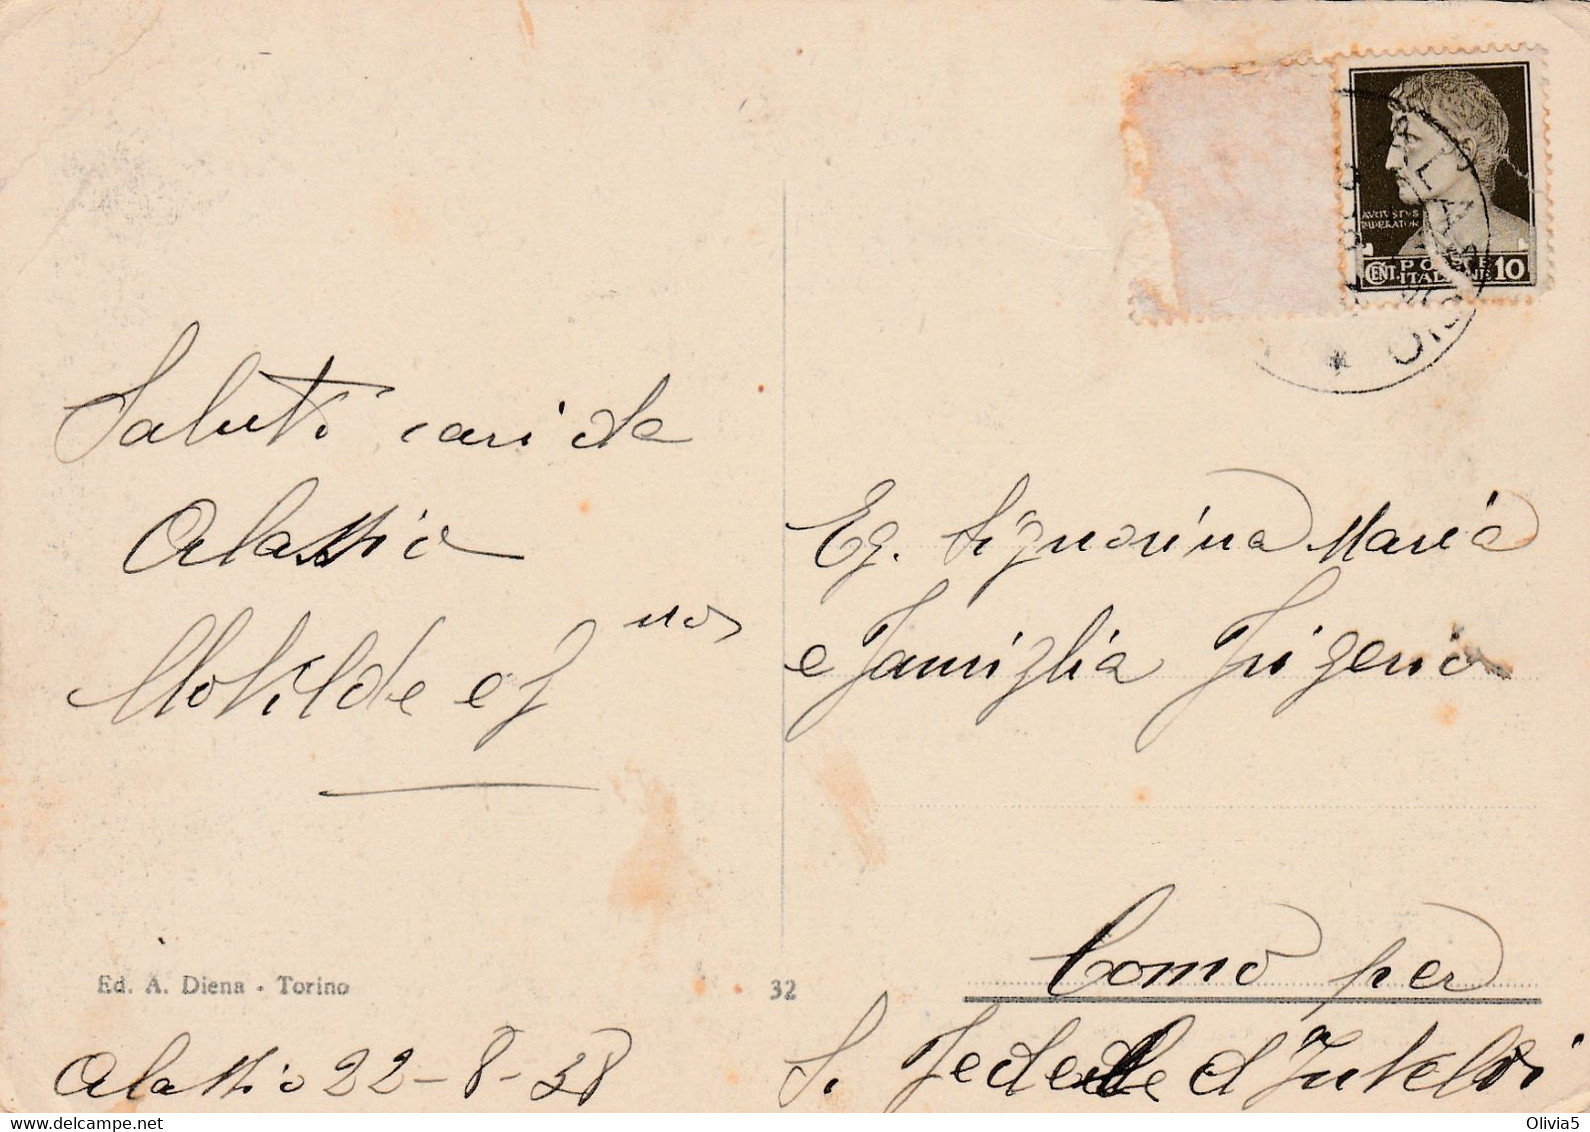 Saluti cari da
Alassio
Matilde e
Eg. Signorina Maria
e Famiglia Frigerio
Como per
S. Fedele d'Intelvi
Ed. A. Diena - Torino
32
Alassio 22-8-38
AVGVSTVS
IMPERATOR
CENT. POSTE ITALIANE 10
delcampe.net
Olivia5